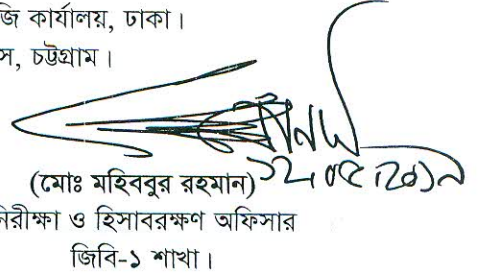 জি কার্যালয়, ঢাকা।
স, চট্টগ্রাম।
১২.০৫.২০১৯
(মোঃ মহিববুর রহমান)
নিরীক্ষা ও হিসাবরক্ষণ অফিসার
জিবি-১ শাখা।